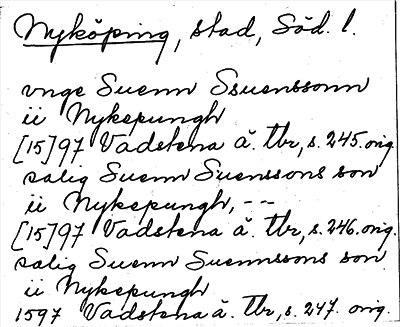 Nyköping, stad, Söd. l.
vnge Suenn Ssuenssonn
ii Nykepungh
[15]97 Vadstena ä. tbr, s. 245. orig.
salig Suenn Suenssons son
ii Nykepungh, --
[15]97 Vadstena ä. tbr, s. 246. orig.
salig Suenn Suennssons son
ii Nykepungh
1597 Vadstena ä. tbr, s. 247. orig.